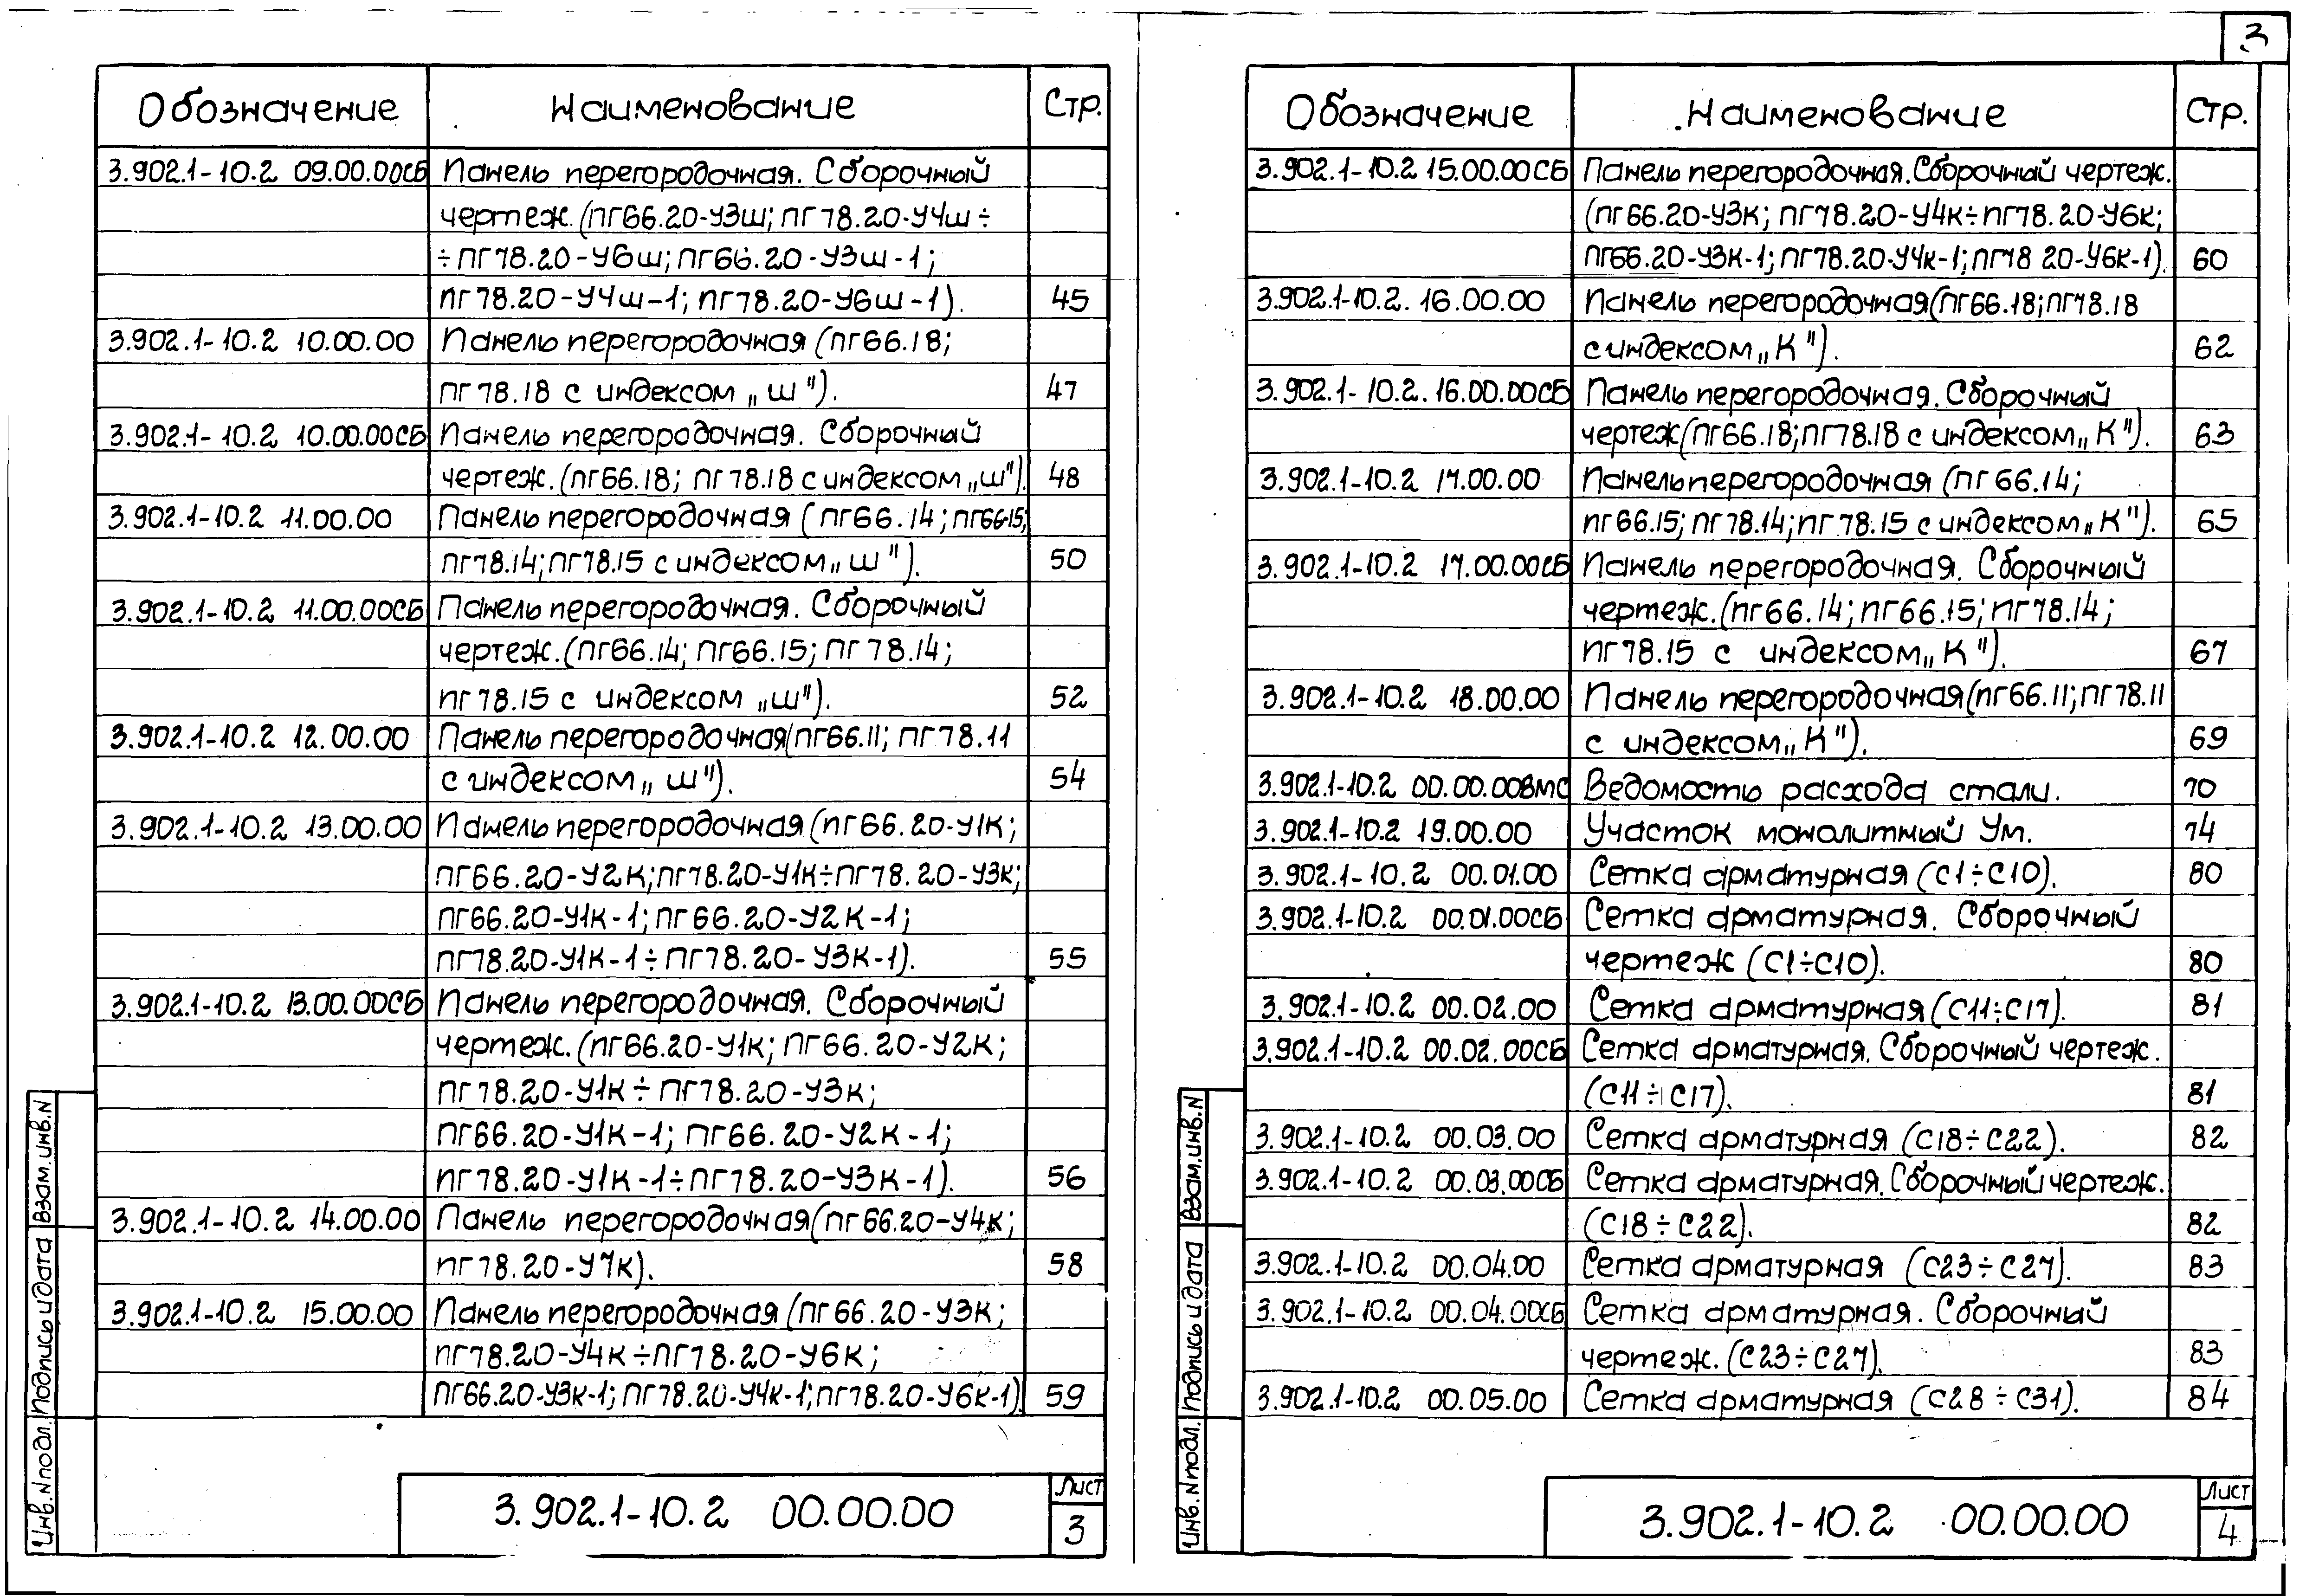 3
Обозначение Наименование Стр.
3.902.1-10.2 09.00.00СБ Панель перегородочная. Сборочный
чертеж. (ПГ66.20-У3ш; ПГ78.20-У4ш÷
÷ПГ78.20-У6ш; ПГ66.20-У3ш-1;
ПГ78.20-У4ш-1; ПГ78.20-У6ш-1). 45
3.902.1-10.2 10.00.00 Панель перегородочная (ПГ66.18;
ПГ78.18 с индексом „Ш"). 47
3.902.1-10.2 10.00.00СБ Панель перегородочная. Сборочный
чертеж. (ПГ66.18; ПГ78.18 с индексом „Ш") 48
3.902.1-10.2 11.00.00 Панель перегородочная (ПГ66.14; ПГ66.15;
ПГ78.14; ПГ78.15 с индексом „Ш"). 50
3.902.1-10.2 11.00.00СБ Панель перегородочная. Сборочный
чертеж. (ПГ66.14; ПГ66.15; ПГ78.14;
ПГ78.15 с индексом „Ш"). 52
3.902.1-10.2 12.00.00 Панель перегородочная (ПГ66.11; ПГ78.11
с индексом „Ш"). 54
3.902.1-10.2 13.00.00 Панель перегородочная (ПГ66.20-У1К;
ПГ66.20-У2К; ПГ78.20-У1К÷ПГ78.20-У3К;
ПГ66.20-У1К-1; ПГ66.20-У2К-1;
ПГ78.20-У1К-1÷ПГ78.20-У3К-1). 55
3.902.1-10.2 13.00.00СБ Панель перегородочная. Сборочный
чертеж. (ПГ66.20-У1К; ПГ66.20-У2К;
ПГ78.20-У1К÷ПГ78.20-У3К;
ПГ66.20-У1К-1; ПГ66.20-У2К-1;
ПГ78.20-У1К-1÷ПГ78.20-У3К-1). 56
3.902.1-10.2 14.00.00 Панель перегородочная (ПГ66.20-У4К;
ПГ78.20-У7К). 58
3.902.1-10.2 15.00.00 Панель перегородочная (ПГ66.20-У3К;
ПГ78.20-У4К÷ПГ78.20-У6К;
ПГ66.20-У3К-1; ПГ78.20-У4К-1; ПГ78.20-У6К-1) 59
3.902.1-10.2 00.00.00 Лист 3
Инв. N подл. Подпись и дата Взам. инв. N
Обозначение Наименование Стр.
3.902.1-10.2 15.00.00СБ Панель перегородочная. Сборочный чертеж.
(ПГ66.20-У3К; ПГ78.20-У4К÷ПГ78.20-У6К;
ПГ66.20-У3К-1; ПГ78.20-У4К-1; ПГ78 20-У6К-1). 60
3.902.1-10.2. 16.00.00 Панель перегородочная (ПГ66.18; ПГ78.18
с индексом „К"). 62
3.902.1-10.2. 16.00.00СБ Панель перегородочная. Сборочный
чертеж (ПГ66.18; ПГ78.18 с индексом „К"). 63
3.902.1-10.2 17.00.00 Панель перегородочная (ПГ66.14;
ПГ66.15; ПГ78.14; ПГ78.15 с индексом „К"). 65
3.902.1-10.2 17.00.00СБ Панель перегородочная. Сборочный
чертеж. (ПГ66.14; ПГ66.15; ПГ78.14;
ПГ78.15 с индексом „К"). 67
3.902.1-10.2 18.00.00 Панель перегородочная (ПГ66.11; ПГ78.11
с индексом „К"). 69
3.902.1-10.2 00.00.00ВМС Ведомость расхода стали. 70
3.902.1-10.2 19.00.00 Участок монолитный Ум. 74
3.902.1-10.2 00.01.00 Сетка арматурная (С1÷С10). 80
3.902.1-10.2 00.01.00СБ Сетка арматурная. Сборочный
чертеж (С1÷С10). 80
3.902.1-10.2 00.02.00 Сетка арматурная (С11÷С17). 81
3.902.1-10.2 00.02.00СБ Сетка арматурная. Сборочный чертеж.
(С11÷С17). 81
3.902.1-10.2 00.03.00 Сетка арматурная (С18÷С22). 82
3.902.1-10.2 00.03.00СБ Сетка арматурная. Сборочный чертеж.
(С18÷С22). 82
3.902.1-10.2 00.04.00 Сетка арматурная (С23÷С27). 83
3.902.1-10.2 00.04.00СБ Сетка арматурная. Сборочный
чертеж. (С23÷С27). 83
3.902.1-10.2 00.05.00 Сетка арматурная (С28÷С31). 84
3.902.1-10.2 00.00.00 Лист 4
Инв. N подл. Подпись и дата Взам. инв. N